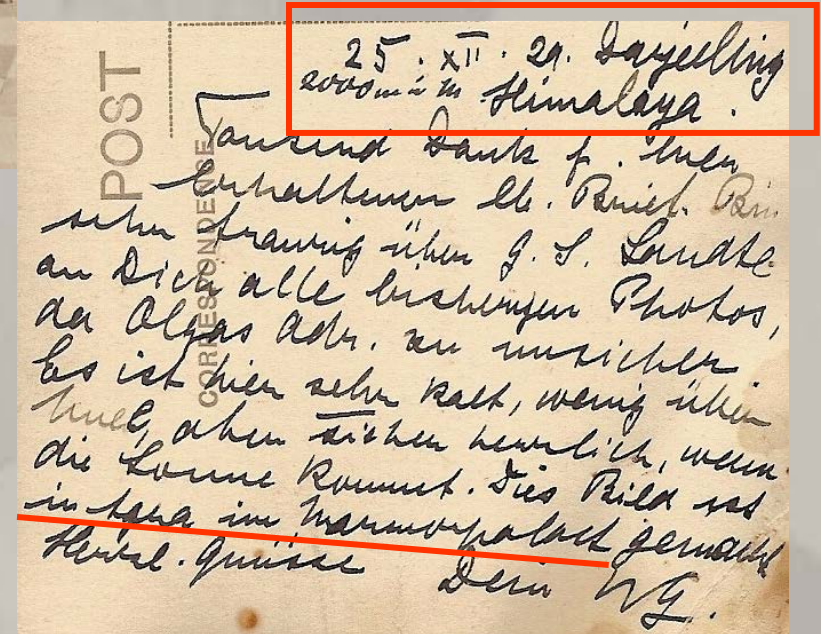 POST
CORRESPONDENSE
25. XII. 29. Darjeeling
2000 m i m Himalaya.
Tausend Dank f. Euern
Erhaltenen lb. Brief. Bin
sehr traurig über G. S. Sandte
an Dich alle bisherigen Photos,
da Olgas Adr. zu unsicher
Es ist hier sehr kalt, wenig über
Null, aber sicher herrlich, wenn
die Sonne kommt. Dies Bild ist
in Agra im Marmorpalast gemacht
Herzl. Grüsse Dein WG.